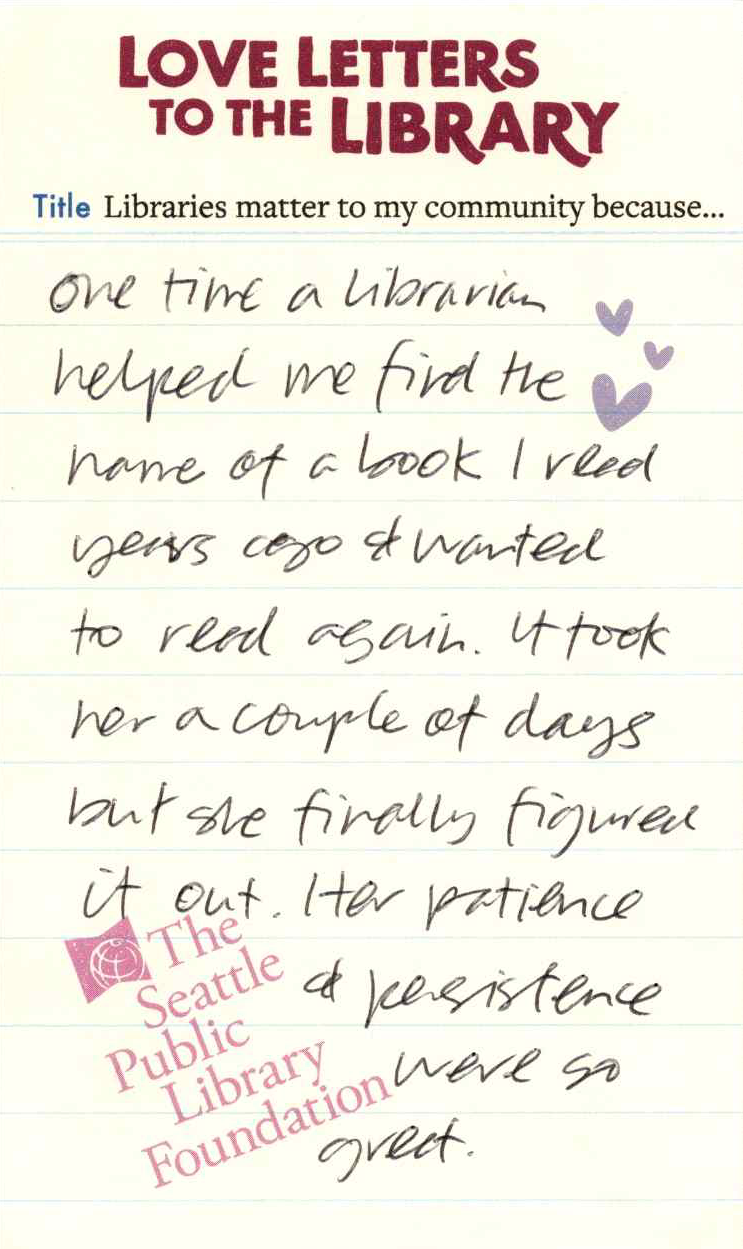 LOVE LETTERS
TO THE LIBRARY
Title Libraries matter to my community because...
one time a librarian
helped me find the
name of a book I read
years ago & wanted
to read again. It took
her a couple of days
but she finally figured
it out. Her patience
& persistence
were so
great.
The
Seattle
Public
Library
Foundation